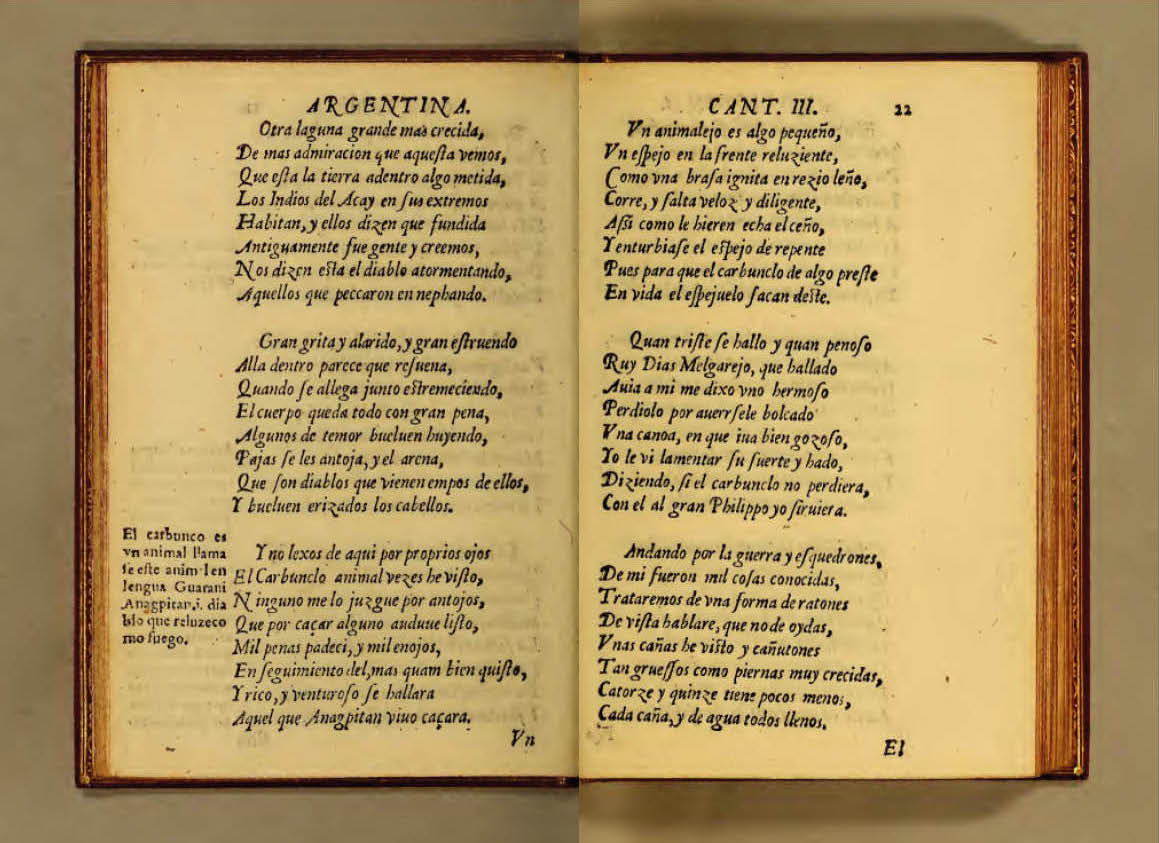 ARGENTINA.
Otra laguna grande mas crecida,
De mas admiracion que aquesta vemos,
Que esta la tierra adentro algo metida,
Los Indios del Acay en sus extremos
Habitan, y ellos dizen que fundida
Antiguamente fue gente y creemos,
Nos dizen esta el diablo atormentando,
Aquellos que peccaron en nephando.
Gran grita y alarido, y gran estruendo
Alla dentro parece que resuena,
Quando se allega junto estremeciendo,
El cuerpo queda todo con gran pena,
Algunos de temor bueluen huyendo,
Pajas se les antoja, y el arena,
Que son diablos que vienen empos de ellos,
Y bueluen erizados los cabellos.
El carbunco es
vn animal llama
se este anim l en
lengua Guarani
Anagpitan, i. dia
blo que reluze co
mo fuego.
Y no lexos de aqui por proprios ojos
El Carbunclo animal vezes he visto,
Ninguno me lo juzgue por antojos,
Que por caçar alguno anduue listo,
Mil penas padeci, y mil enojos,
En seguimiento del, mas quam bien quisto,
Y rico, y venturoso se hallara
Aquel que Anagpitan viuo caçara.
Vn
CANT. III. 22
Vn animalejo es algo pequeño,
Vn espejo en la frente reluziente,
Como vna brasa ignita en rezio leño,
Corre, y salta veloz y diligente,
Assi como le hieren echa el ceño,
Y enturbiase el espejo de repente
Pues para que el carbunclo de algo preste
En vida el espejuelo sacan deste.
Quan triste se hallo y quan penoso
Ruy Dias Melgarejo, que hallado
Auia a mi me dixo vno hermoso
Perdiolo por auerrsele bolcado
Vna canoa, en que iua bien gozoso,
Yo le vi lamentar su suerte y hado,
Diziendo, si el carbunclo no perdiera,
Con el al gran Philippo yo siruiera.
Andando por la guerra y esquedrones,
De mi fueron mil cosas conocidas,
Trataremos de vna forma de ratones
De vista hablare, que no de oydas,
Vnas cañas he visto y cañutones
Tan gruessos como piernas muy crecidas,
Catorze y quinze tiene pocos menos,
Cada caña, y de agua todos llenos.
El